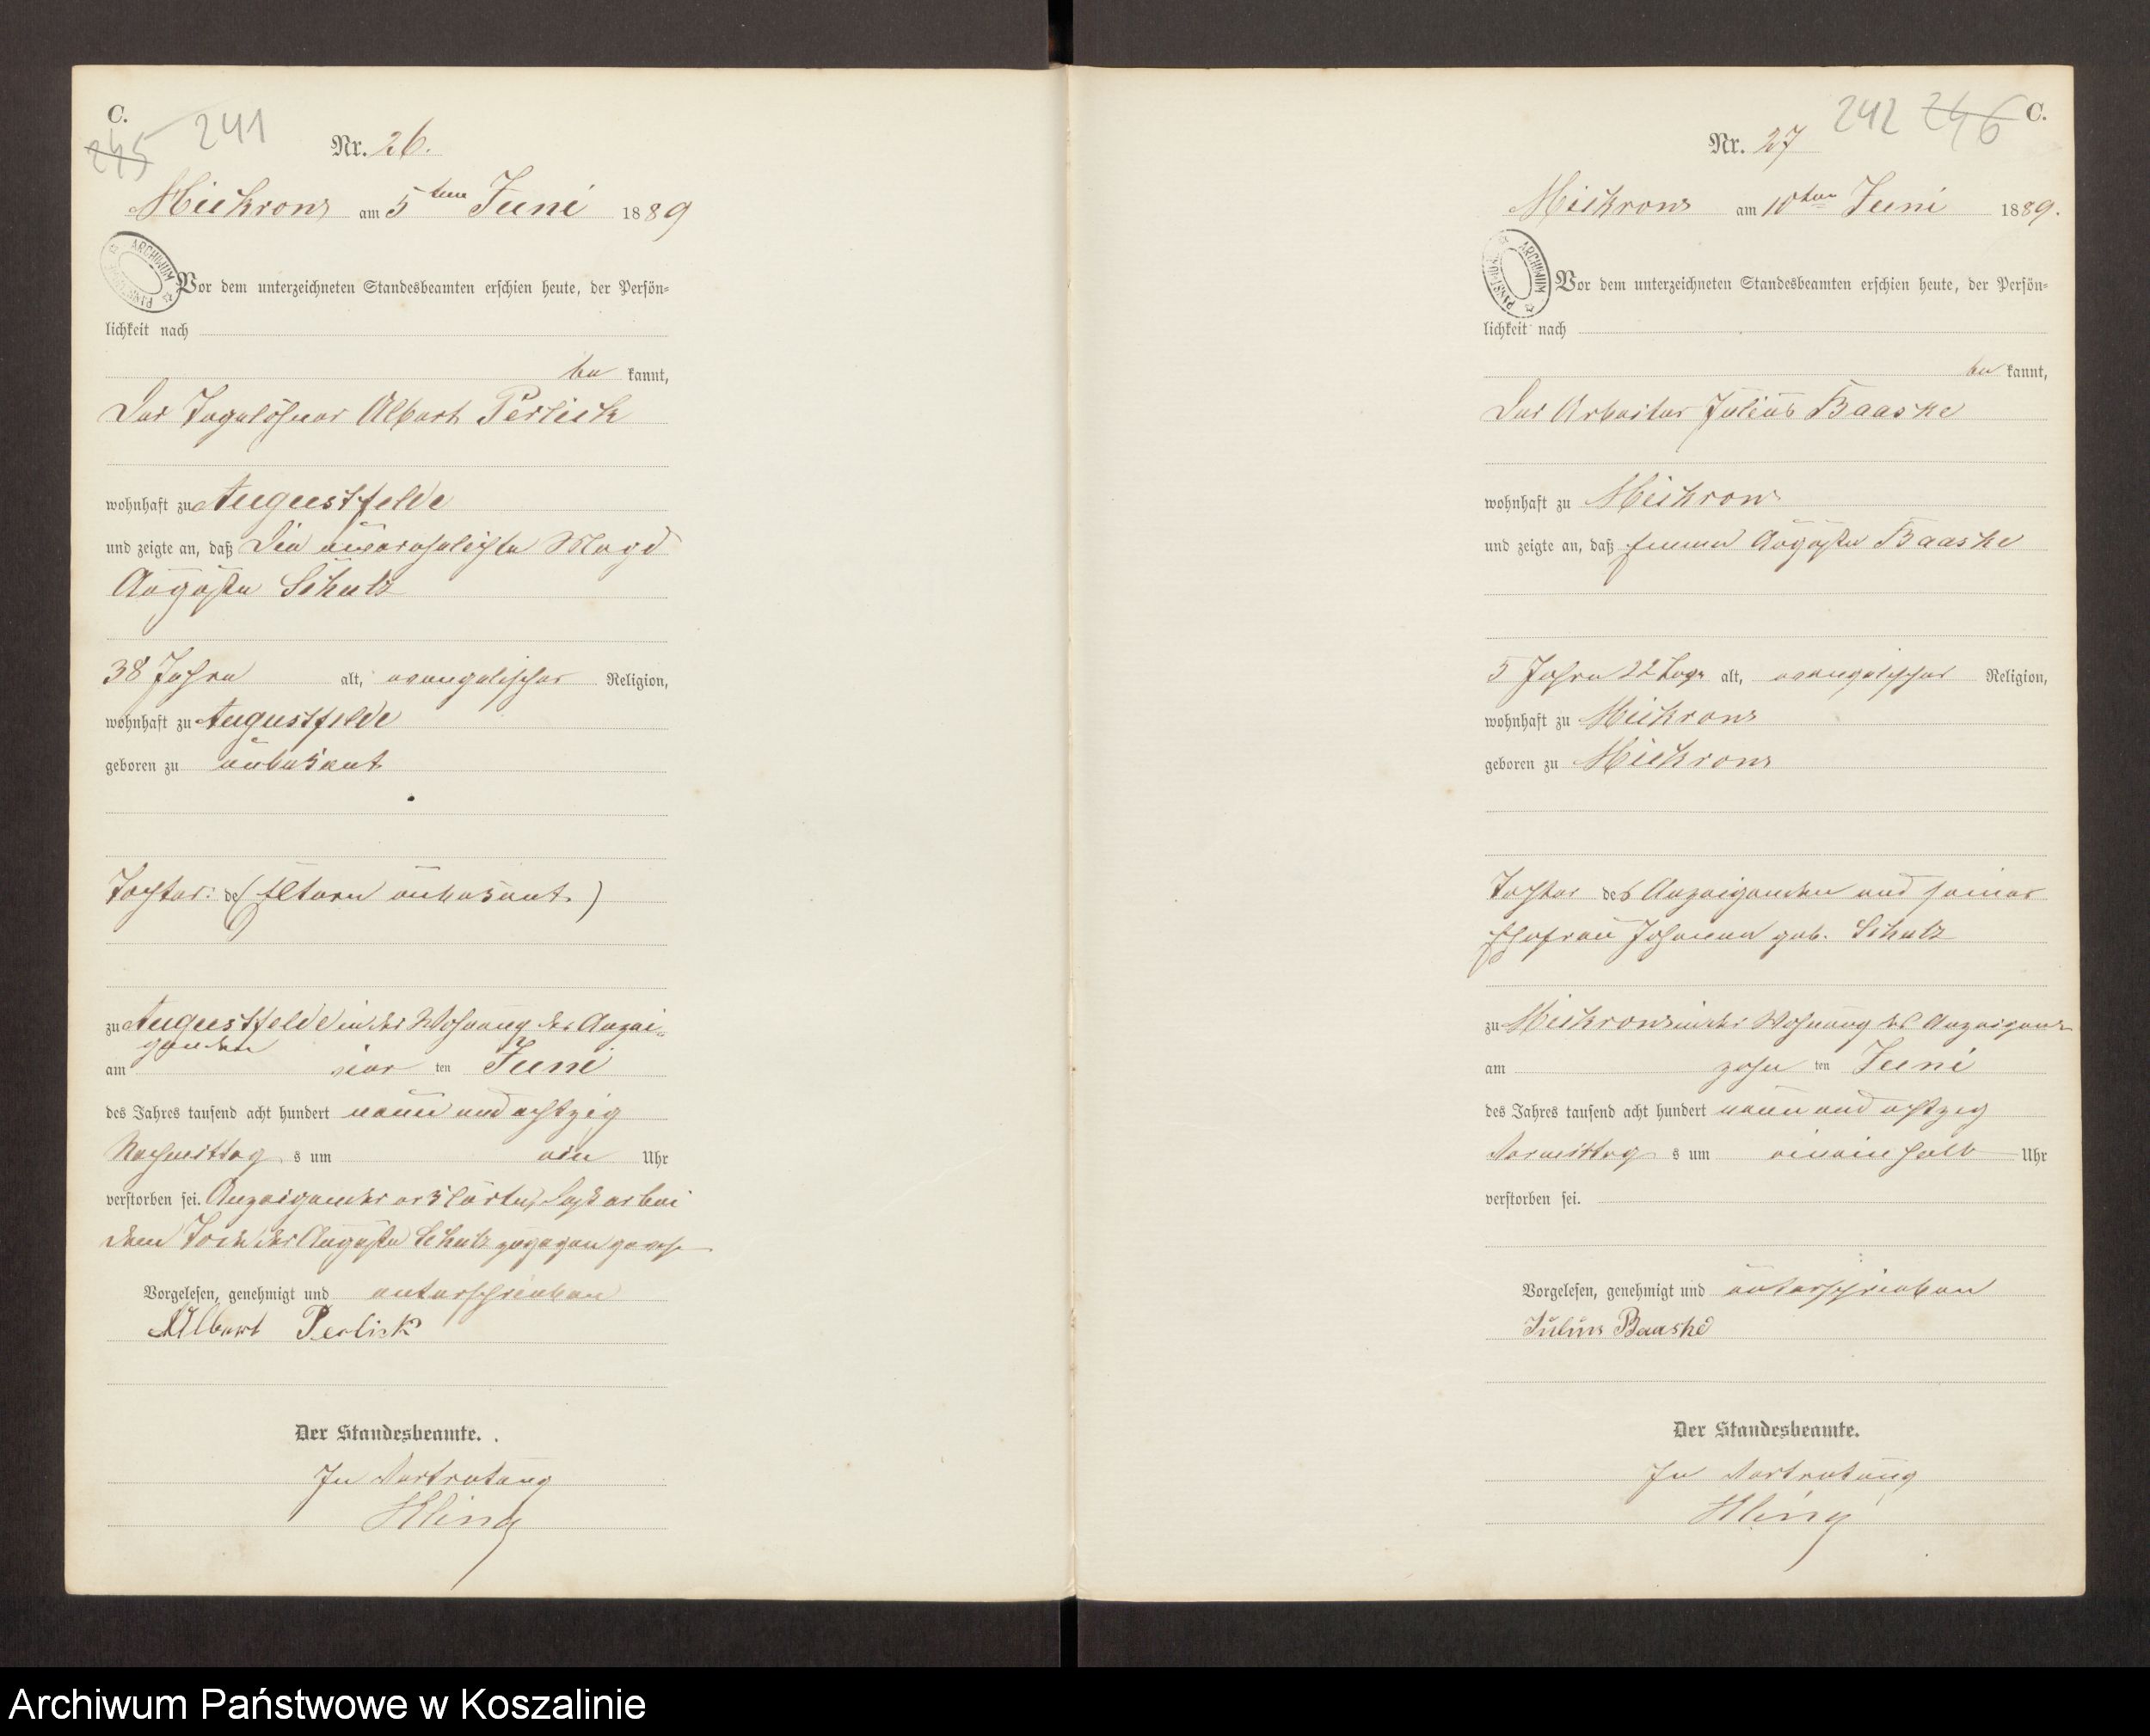 C.
245 241
Nr. 26.
Mickrow am 5ten Juni 1889
Vor dem unterzeichneten Standesbeamten erschien heute, der Persön-
lichkeit nach
be kannt,
Der Tagelöhner Albert Perlick
wohnhaft zu Augustfelde
und zeigte an, daß Die unverehelichte Magd
Auguste Schulz
38 Jahre alt, evangelischer Religion,
wohnhaft zu Augustfelde
geboren zu unbekant
Tochter: de (Eltern unbekant.)
zu Augustfelde in der Wohnung des Anzei-
genden
am vier ten Juni
des Jahres tausend acht hundert neun und achtzig
Nachmittag s um ein Uhr
verstorben sei. Anzeigender erklärte, daß er bei
dem Tode der Auguste Schulz zugegen gewese
Vorgelesen, genehmigt und unterschrieben
Albert Perlick
Der Standesbeamte.
In Vertretung
Kling
242 246 C.
Nr. 27
Mickrow am 10ten Juni 1889.
Vor dem unterzeichneten Standesbeamten erschien heute, der Persön-
lichkeit nach
be kannt,
Der Arbeiter Julius Baaske
wohnhaft zu Mickrow
und zeigte an, daß Emma Auguste Baaske
5 Jahre 22 Tage alt, evangelischer Religion,
wohnhaft zu Mickrow
geboren zu Mickrow
Tochter des Anzeigenden und seiner
Ehefrau Johanna geb. Schulz
zu Mickrow in der Wohnung des Anzeigend
am zehn ten Juni
des Jahres tausend acht hundert neun und achtzig
Vormittag s um eineinhalb Uhr
verstorben sei.
Vorgelesen, genehmigt und unterschrieben
Julius Baaske
Der Standesbeamte.
In Vertretung
Kling
Archiwum Państwowe w Koszalinie